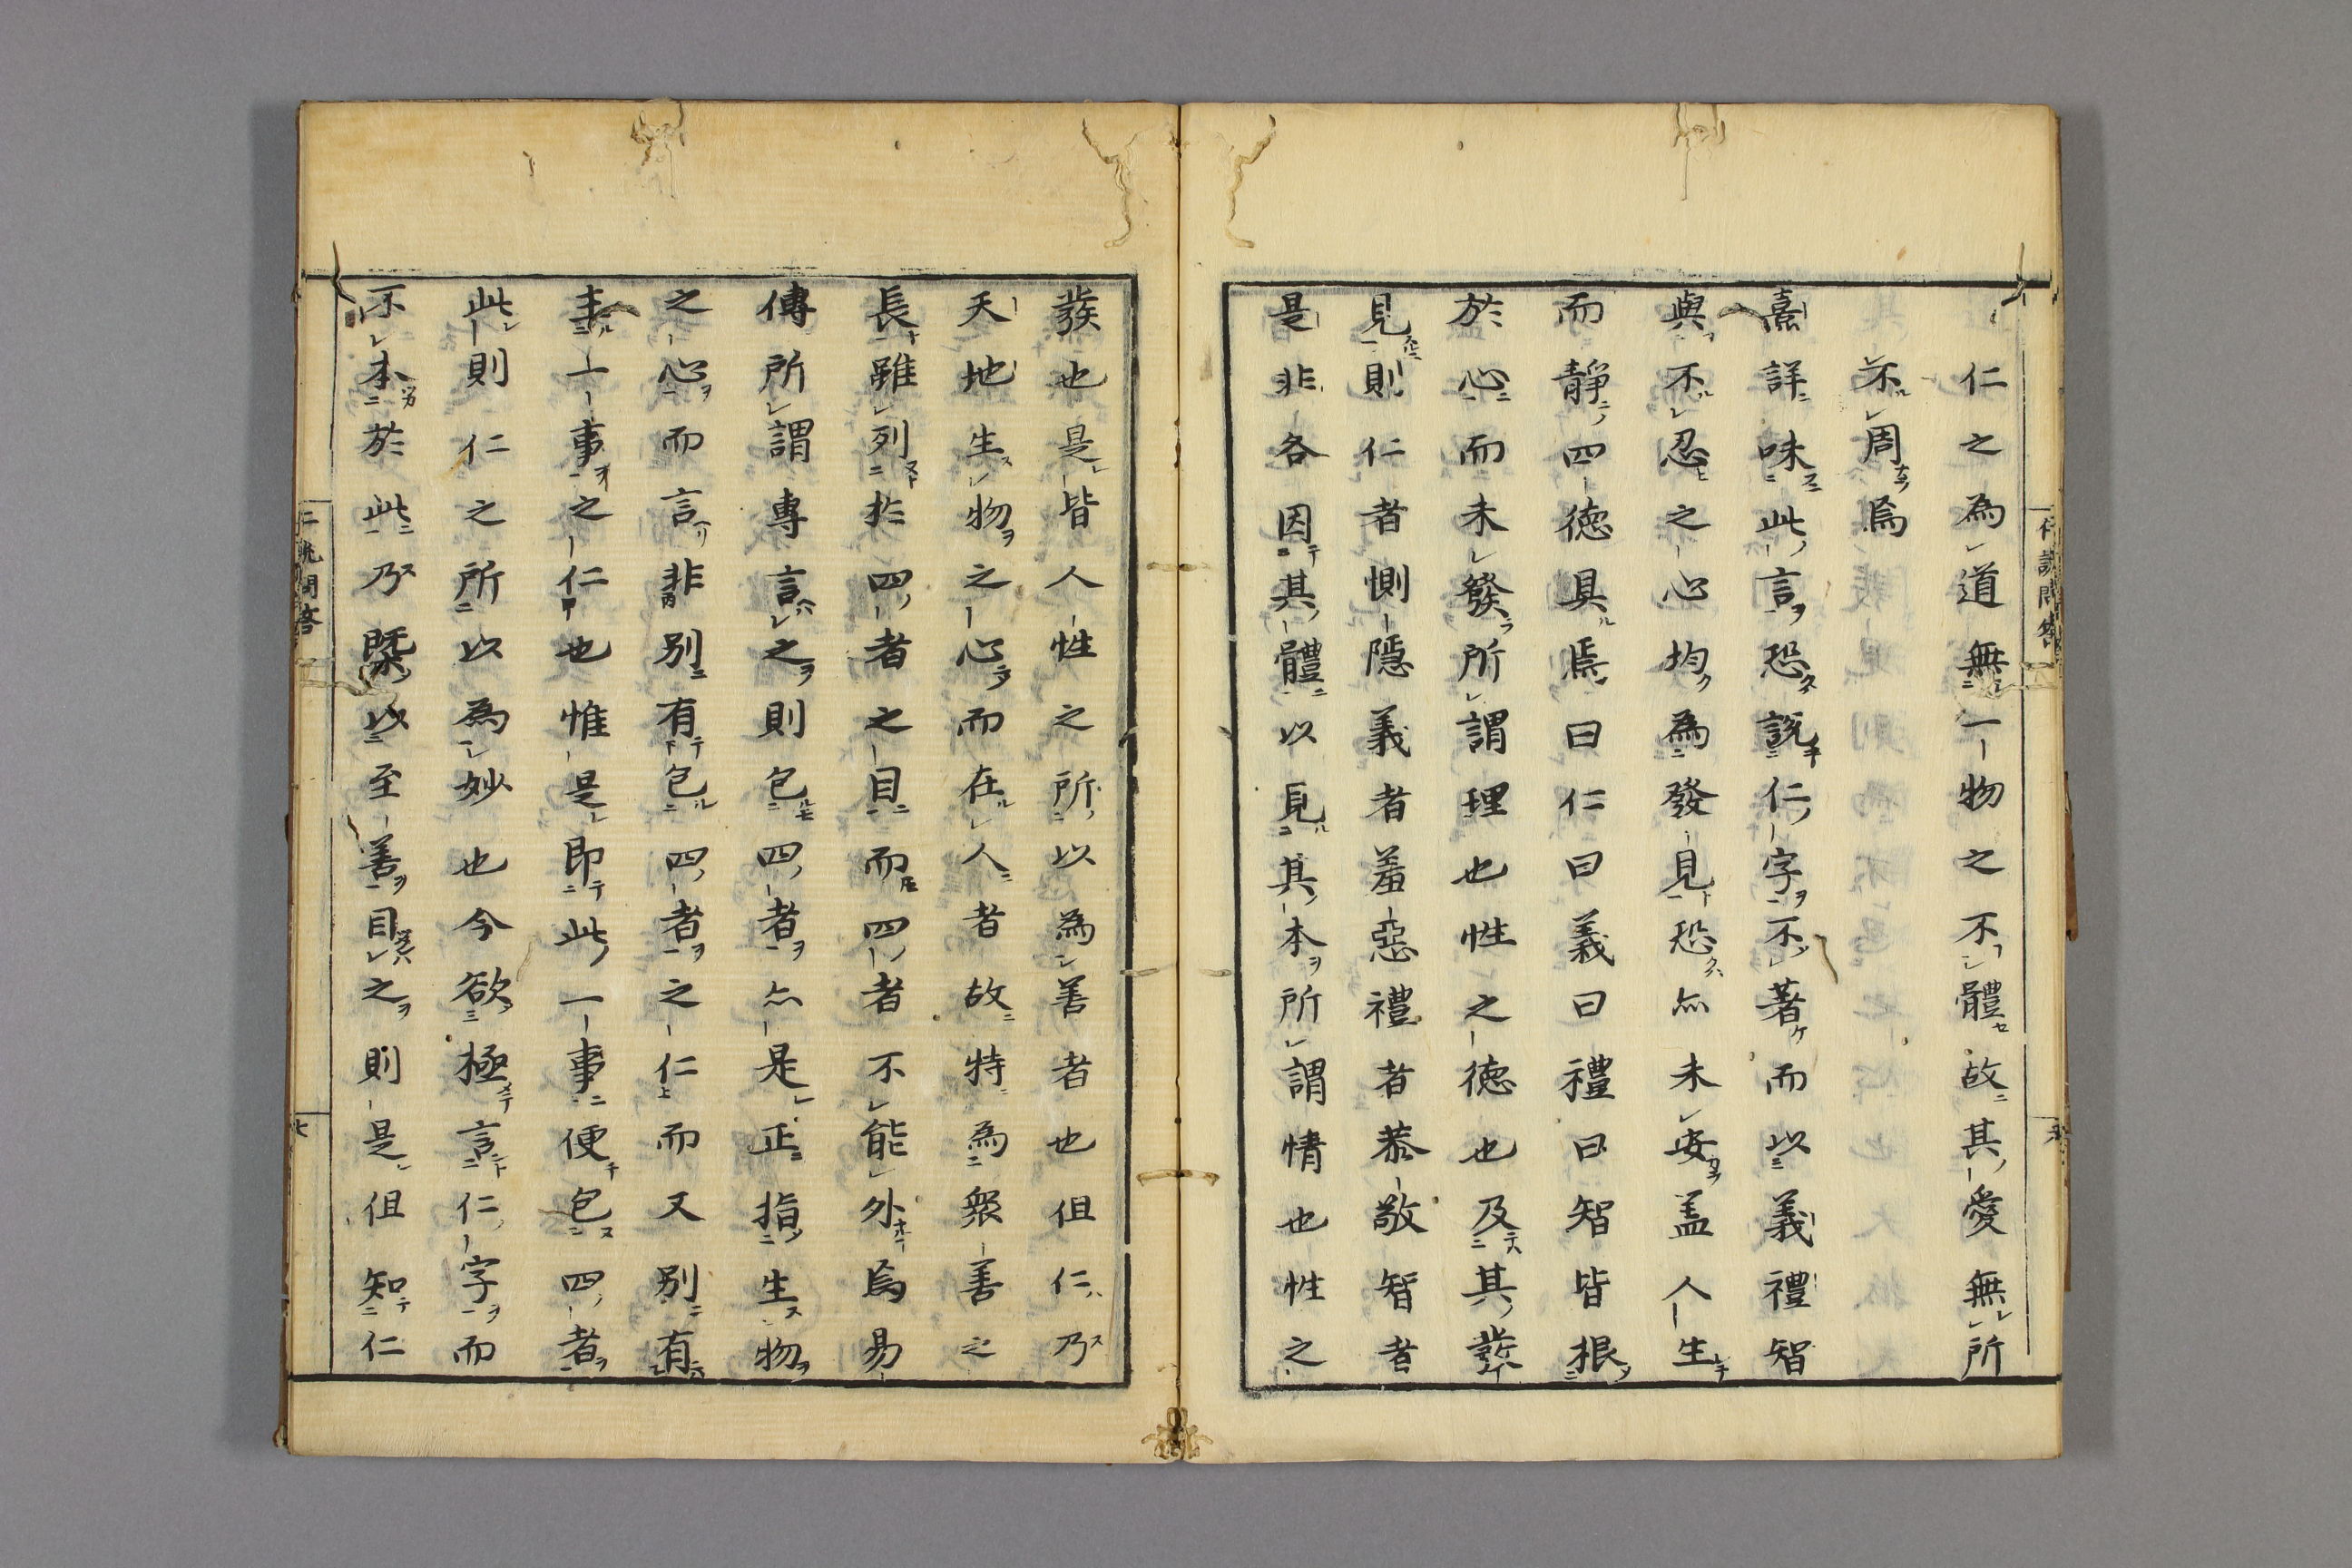 仁之為道無一物之不體故其愛無所
不周焉
熹詳味此言恐說仁字不著而以義禮智
與不忍之心均為發見恐亦未安盖人生
而靜四德具焉曰仁曰義曰禮曰智皆根
於心而未發所謂理也性之德也及其發
見則仁者惻隱義者羞惡禮者恭敬智者
是非各因其體以見其本所謂情也性之
發也是皆人性之所以為善者也但仁乃
天地生物之心而在人者故特為衆善之
長雖列於四者之目而四者不能外焉易
傳所謂專言之則包四者亦是正指生物
之心而言非別有包四者之仁而又別有
主一事之仁也惟是即此一事便包四者
此則仁之所以為妙也今欲極言仁字而
不本於此乃槩以至善目之則是但知仁
仁說問答
仁說問答
七